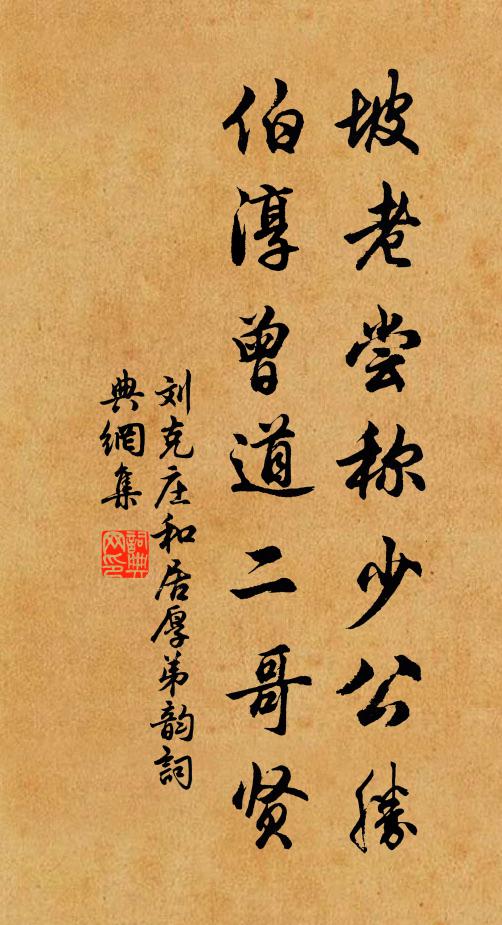 坡老尝称少公胜
伯淳曾道二哥贤
刘克庄和居厚弟韵词
典網集
詞典网印